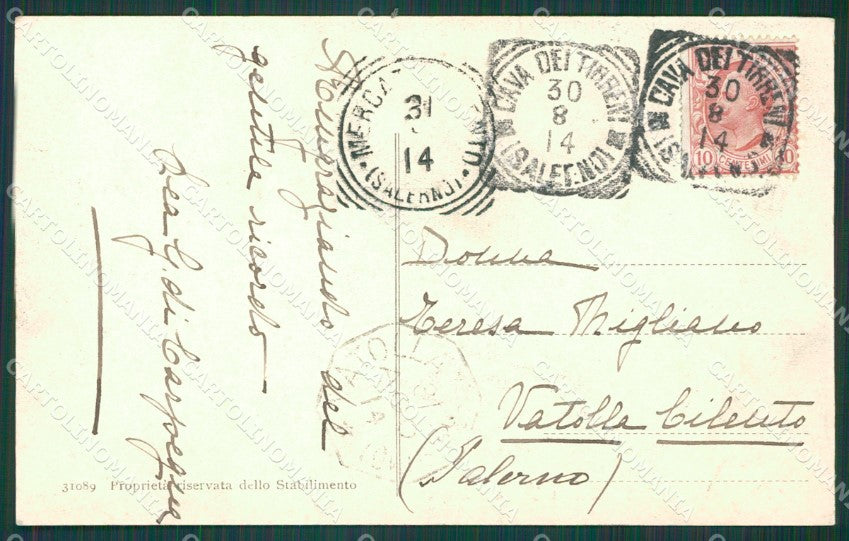 Ringraziando del
gentile ricordo
Lea G. di Carpegna
MERCA
31
14
(SALERNO)
CAVA DEI TIRRENI
30
8
14
(SALERNO)
CAVA DEI TIRRENI
30
8
14
10 CENTESIMI 10
Donna
Teresa Migliano
Vatolla Cilento
(Salerno)
31089 Proprietà riservata dello Stabilimento
CARTOLINOMANIA